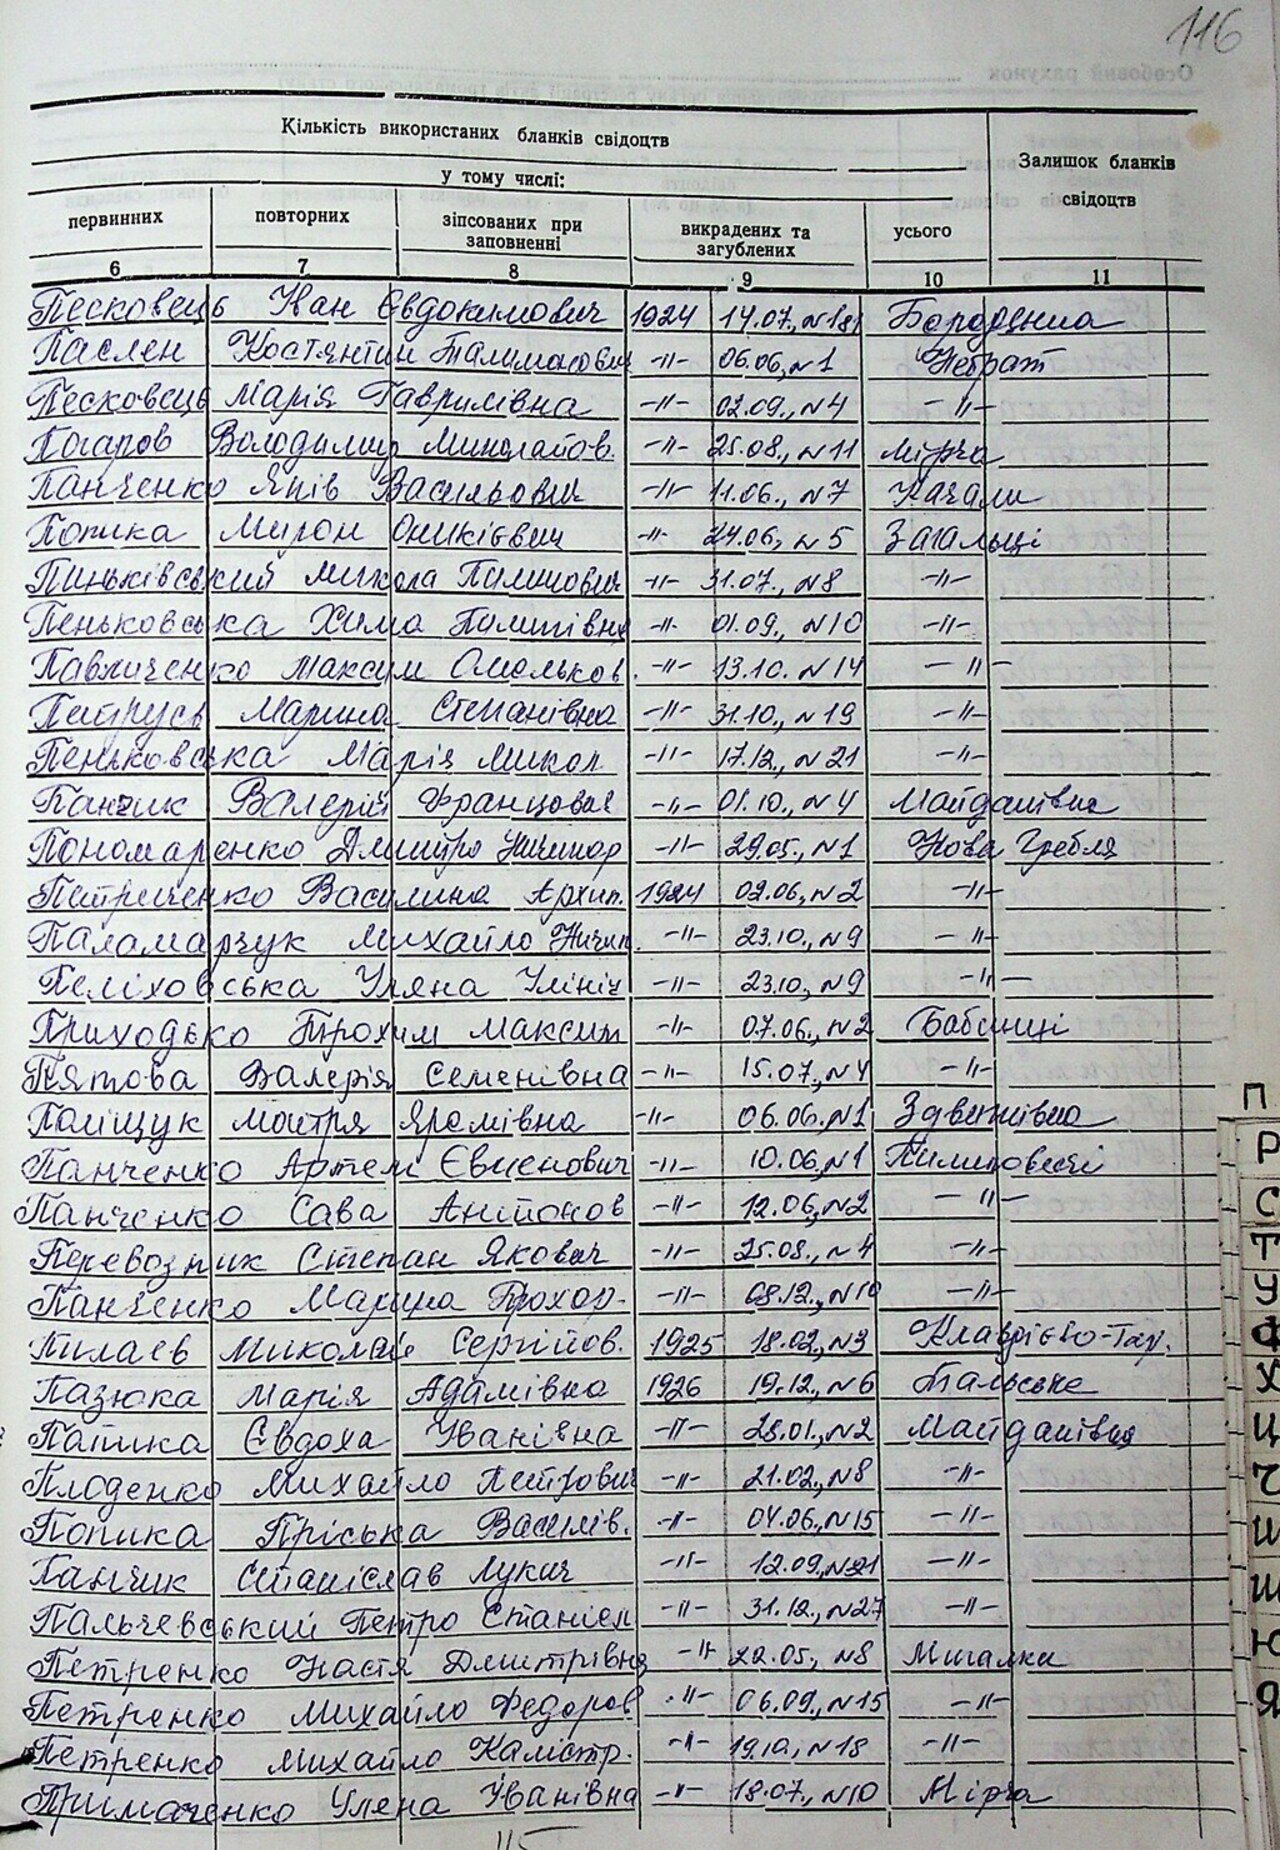 116
Кількість використаних бланків свідоцтв
Залишок бланків свідоцтв
у тому числі:
первинних повторних зіпсованих при заповненні викрадених та загублених усього
6 7 8 9 10 11
Песковець Іван Євдокимович 1924 14.07., N181 Бородянка
Паслен Костянтин -"- 06.06., N1 Небрат
Песковець Марія Гаврилівна -"- 02.09., N4 -"-
Погаров Володимир Миколайов. -"- 25.08., N11 Мірча
Панченко Яків Васильович -"- 11.06., N7 Качали
Попика Мирон Оникієвич -"- 24.06, N5 Загальці
Пиньківський Микола Пилипович -"- 31.07., N8 -"-
Пеньковська Хима Пилипівна -"- 01.09., N10 -"-
Павличенко Максим Омельков. -"- 13.10. N14 -"-
Патрусь Марина Степанівна -"- 31.10., N19 -"-
Пеньковська Марія Микол. -"- 17.12., N21 -"-
Панчик Валерій Францович -"- 01.10., N4 Майданівка
Пономаренко Дмитро Ничипор -"- 29.05., N1 Нова Гребля
Петриченко Василина Архип. 1924 02.06., N2 -"-
Паламарчук Михайло Ничип. -"- 23.10., N9 -"-
Пеліховська Уляна -"- 23.10, N9 -"-
Приходько Трохим Максим -"- 07.06., N2 Бабинці
Пятова Валерія Семенівна -"- 15.07., N4 -"-
Поліщук Мотря -"- 06.06., N1 Здвижівка
Панченко Артем Євменович -"- 10.06, N1 Пилиповичі
Панченко Сава Антонов -"- 12.06, N2 -"-
Перевозник Степан Якович -"- 25.08., N4 -"-
Панченко Марина Прохор. -"- 08.12., N10 -"-
Пилаєв Миколай Сергійов. 1925 18.02., N3 Клавдієво-Тар.
Пазюка Марія Адамівна 1926 19.12., N6 Тальське
Папика Євдоха Іванівна -"- 28.01., N2 Майданівка
Плоденко Михайло Петрович -"- 21.02., N8 -"-
Попика Пріська Василів. -"- 04.06., N15 -"-
Панчик Станіслав Лукич -"- 12.09., N21 -"-
Пальчевський Петро Станісл -"- 31.12., N27 -"-
Петренко Настя Дмитрівна -"- 22.05., N8 Мигалки
Петренко Михайло Федоров -"- 06.09., N15 -"-
Петренко Михайло Калістр. -"- 19.10., N18 -"-
Примаченко Уляна Іванівна -"- 18.07., N10 Мірча
115
П
Р
С
Т
У
Ф
Х
Ц
Ч
Ш
Щ
Ю
Я